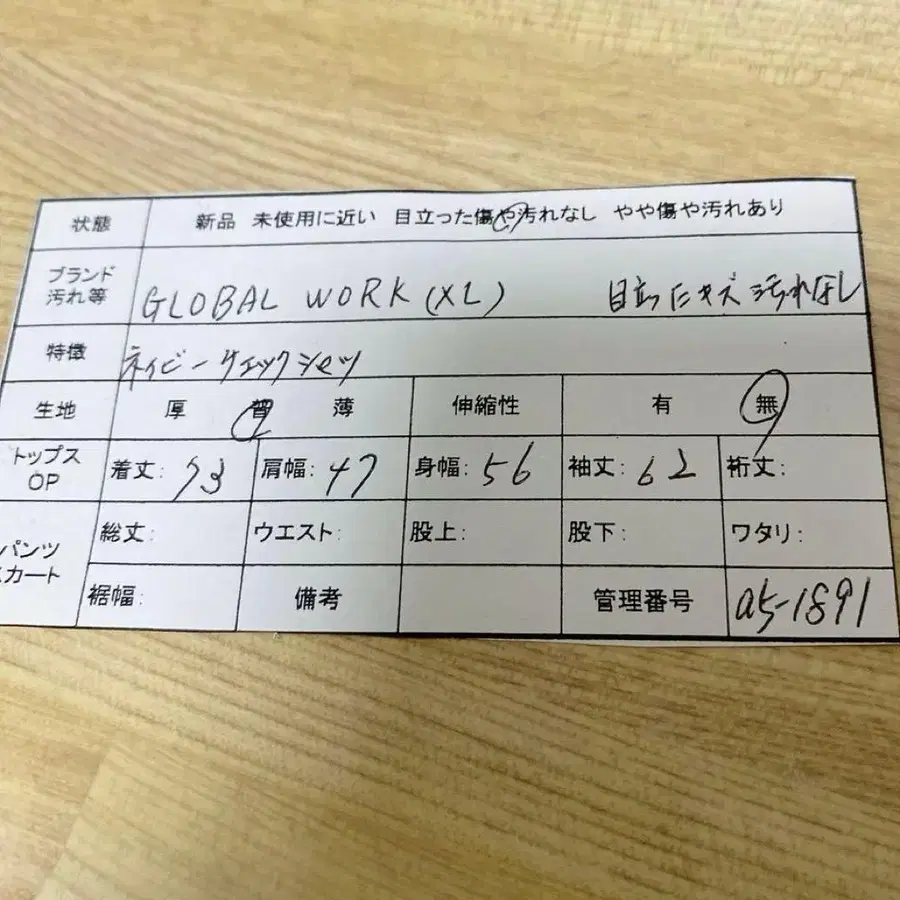 状態 新品 未使用に近い 目立った傷や汚れなし やや傷や汚れあり
ブランド
汚れ等 GLOBAL WORK (XL) 目立ったキズ汚れなし
特徴 ネイビーチェックシャツ
生地 厚 普 薄 伸縮性 有 無
トップス
OP 着丈: 73 肩幅: 47 身幅: 56 袖丈: 62 裄丈:
パンツ
スカート 総丈: ウエスト: 股上: 股下: ワタリ:
裾幅: 備考 管理番号 a5-1891